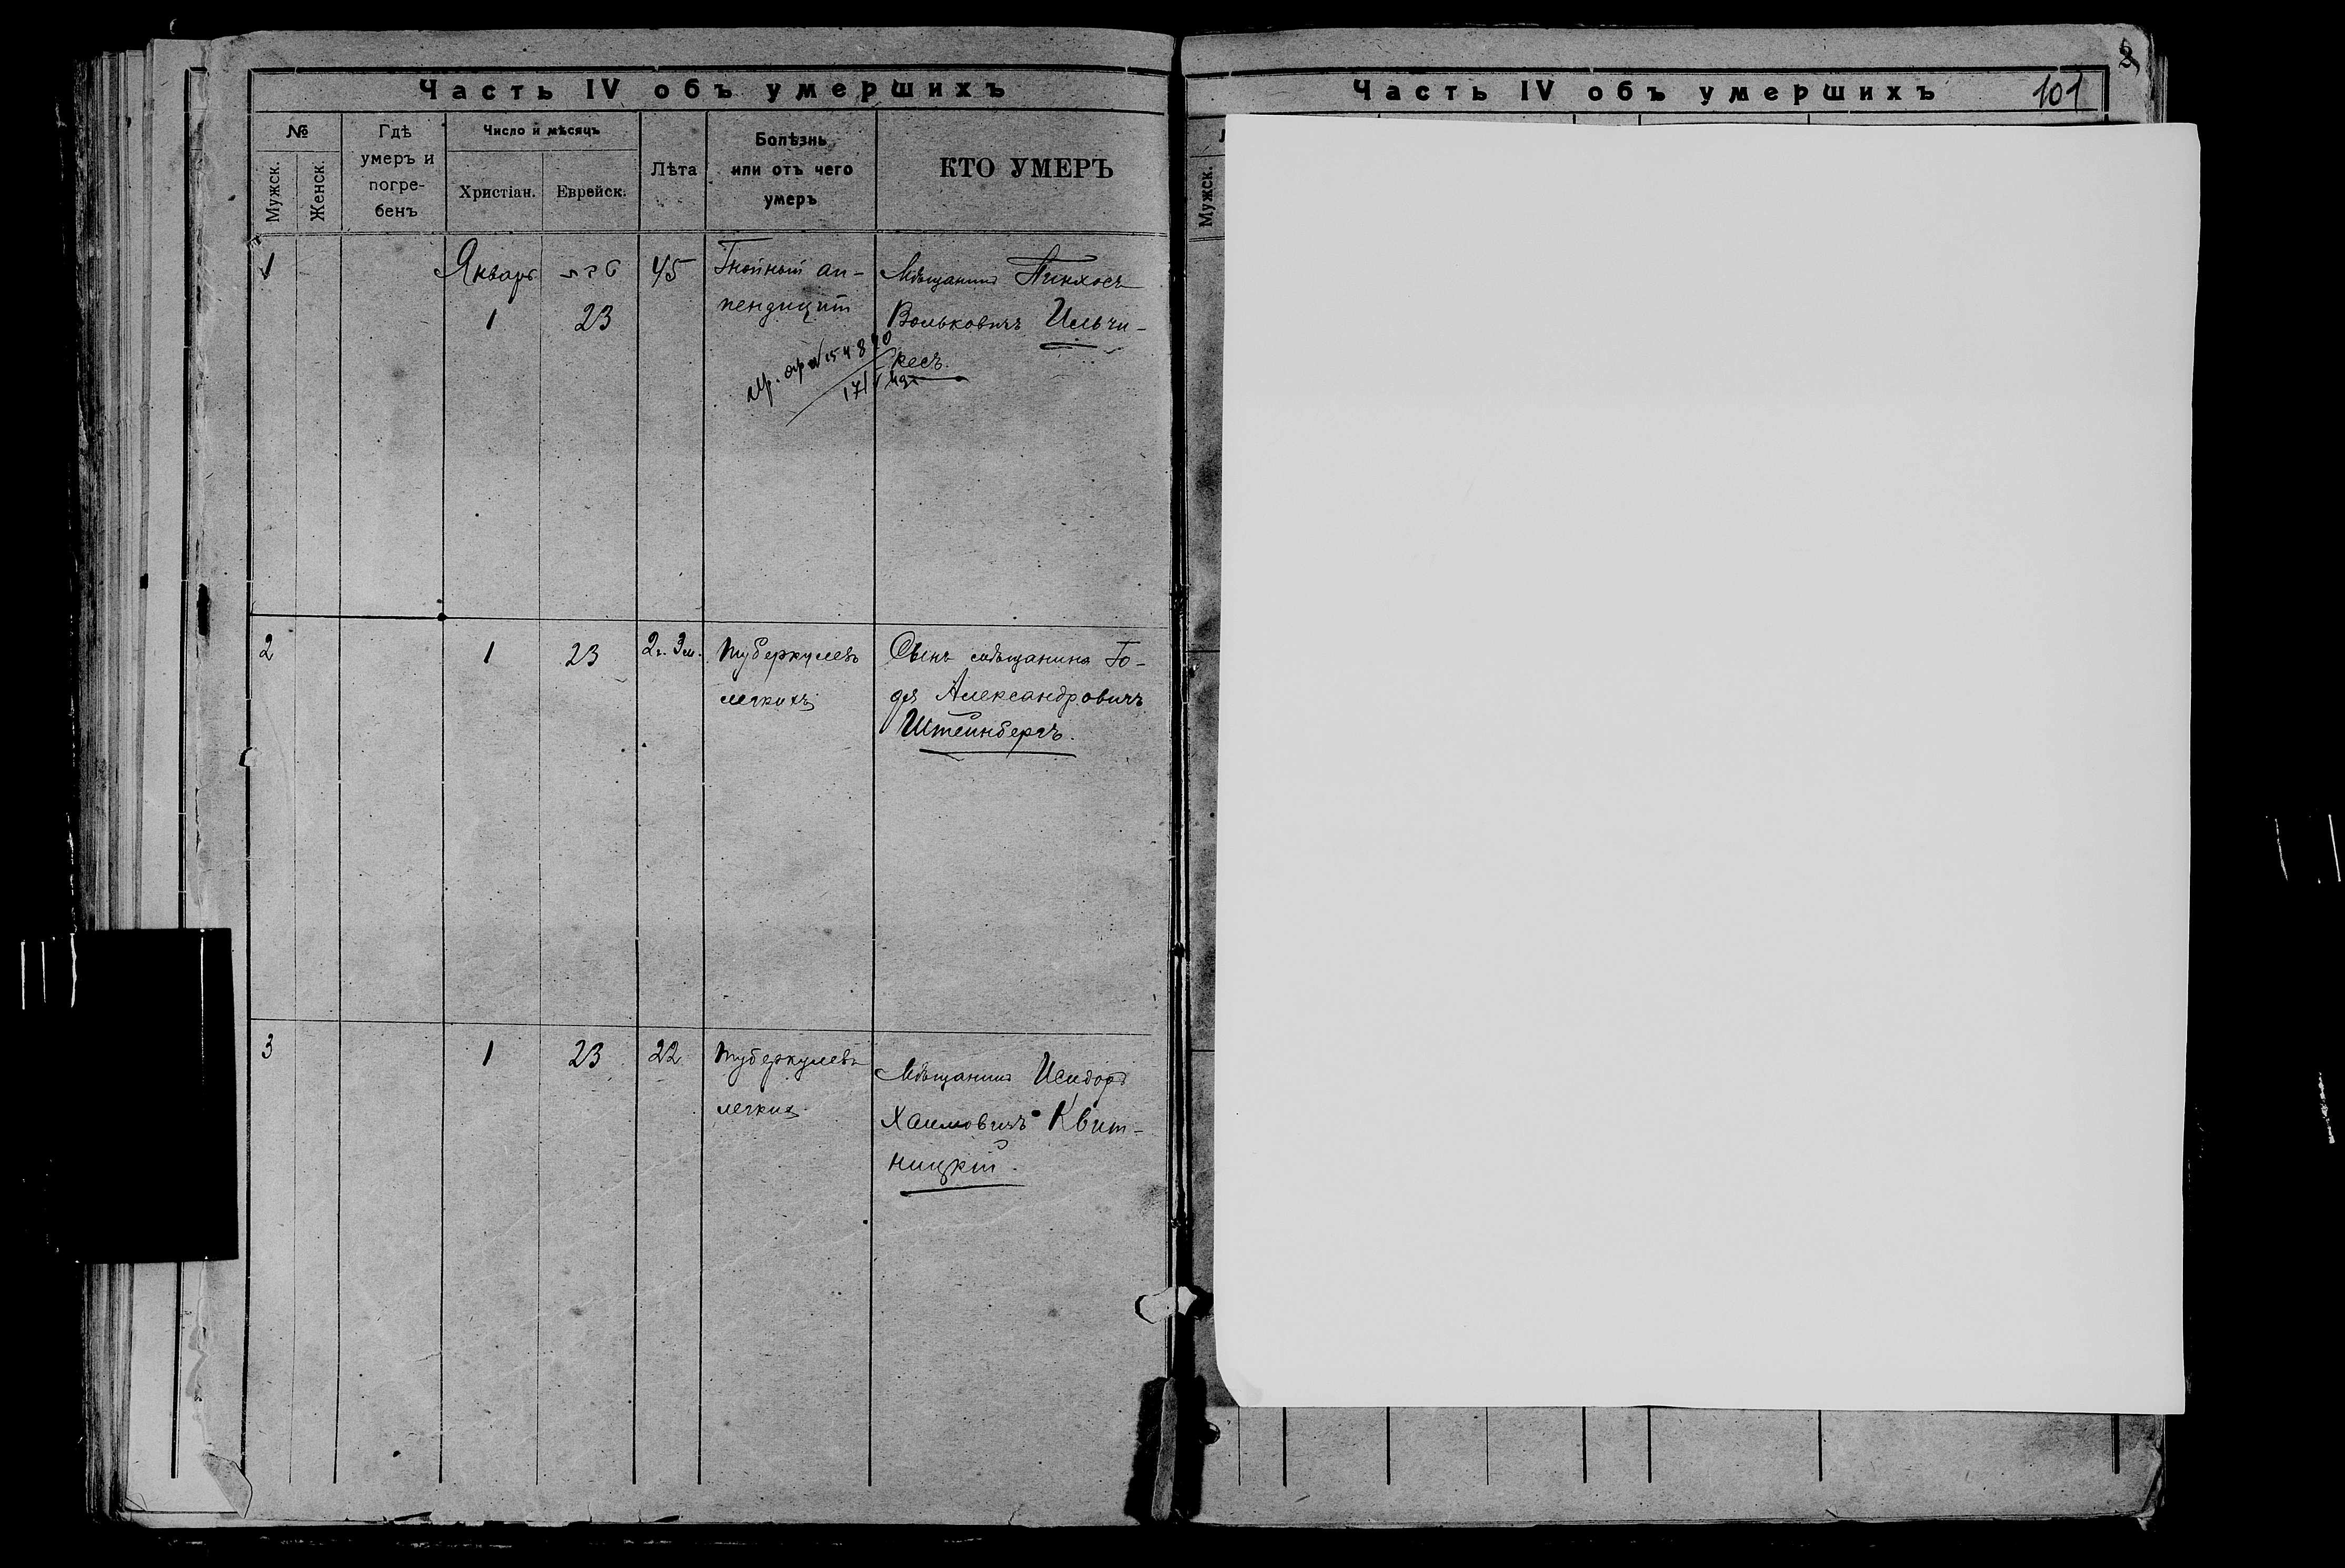 Часть IV объ умершихъ
№
Мужск.
Женск.
Гдѣ
умеръ и
погре-
бенъ
Число и мѣсяцъ
Христіан.
Еврейск.
Лѣта
Болѣзнь
или отъ чего
умеръ
КТО УМЕРЪ
1
Январь
1
טבת
23
45
Гнойный ап-
пендицит
Мѣщанинъ Пинхосъ
Вольковичъ Ильчи-
кесъ.
2
1
23
2 г. 3 м.
туберкулезъ
легкихъ
Сынъ мѣщанина Го-
дя Александровичъ
Штейнбергъ.
3
1
23
22
туберкулезъ
легких
Мѣщанинъ Исидоръ
Хаимовичъ Квит-
ницкій.
Часть IV объ умершихъ
101
Мужск.